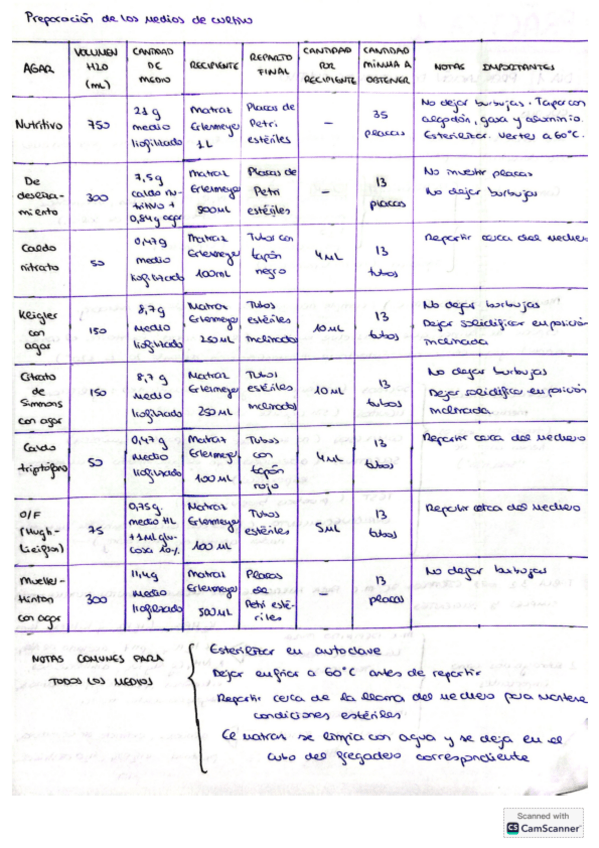 Preparación de los medios de cultivo
AGAR | VOLUMEN H2O (mL) | CANTIDAD DE MEDIO | RECIPIENTE | REPARTO FINAL | CANTIDAD POR RECIPIENTE | CANTIDAD MÍNIMA A OBTENER | NOTAS IMPORTANTES
Nutritivo | 750 | 21 g medio liofilizado | Matraz Erlenmeyer 1L | Placas de Petri estériles | – | 35 placas | No dejar burbujas. Tapar con algodón, gasa y aluminio. Esterilizar. Vertes a 60°C.
De | 300 | 7,5g caldo nutritivo + 0,84g agar | Matraz Erlenmeyer 500mL | Placas de Petri estériles | – | 13 placas | No invertir placas No dejar burbujas
Caldo nitrato | 50 | 0,47g medio liofilizado | Matraz Erlenmeyer 100mL | Tubos con tapón negro | 4mL | 13 tubos | Repartir cerca del mechero
Kligler con agar | 150 | 8,7g medio liofilizado | Matraz Erlenmeyer 250mL | Tubos estériles inclinados | 10mL | 13 tubos | No dejar burbujas Dejar solidificar en posición inclinada
Citrato de Simmons con agar | 150 | 8,7 g medio liofilizado | Matraz Erlenmeyer 250mL | Tubos estériles inclinados | 10mL | 13 tubos | No dejar burbujas Dejar solidificar en posición inclinada
Caldo triptófano | 50 | 0,47g medio liofilizado | Matraz Erlenmeyer 100mL | Tubos con tapón rojo | 4mL | 13 tubos | Repartir cerca del mechero
O/F (Hugh-Leifson) | 75 | 0,75g. medio HL +1mL glucosa 10% | Matraz Erlenmeyer 100mL | Tubos estériles | 5mL | 13 tubos | Repartir cerca del mechero
Mueller-Hinton con agar | 300 | 11,4g medio liofilizado | Matraz Erlenmeyer 500mL | Placas de Petri estériles | – | 13 placas | No dejar burbujas
NOTAS COMUNES PARA TODOS LOS MEDIOS
Esterilizar en autoclave
Dejar enfriar a 60°C antes de repartir
Repartir cerca de la llama del mechero para mantene
condiciones estériles
matraz se limpia con agua y se deja en el
cubo del fregadero correspondiente
Scanned with
CS CamScanner